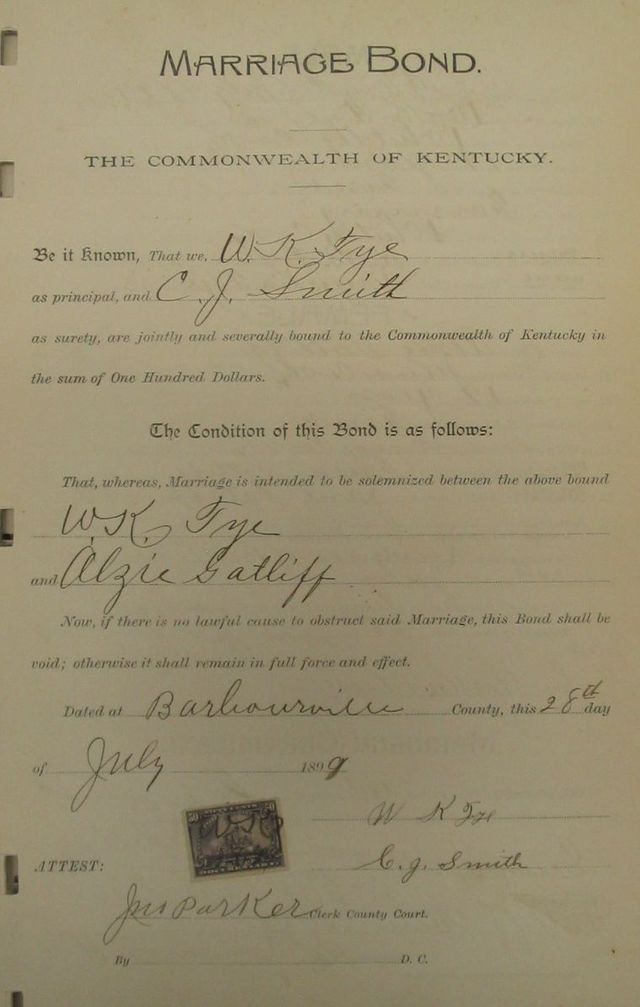 MARRIAGE BOND.
THE COMMONWEALTH OF KENTUCKY.
Be it Known, That we, W. K. Tye
as principal, and C. J. Smith
as surety, are jointly and severally bound to the Commonwealth of Kentucky in
the sum of One Hundred Dollars.
The Condition of this Bond is as follows:
That, whereas, Marriage is intended to be solemnized between the above bound
W. K. Tye
and Alzie Gatliff
Now, if there is no lawful cause to obstruct said Marriage, this Bond shall be
void; otherwise it shall remain in full force and effect.
Dated at Barbourville County, this 28th day
of July 1899
W K Tye
50 50
ATTEST: C. J. Smith
Jno Parker Clerk County Court.
By D. C.